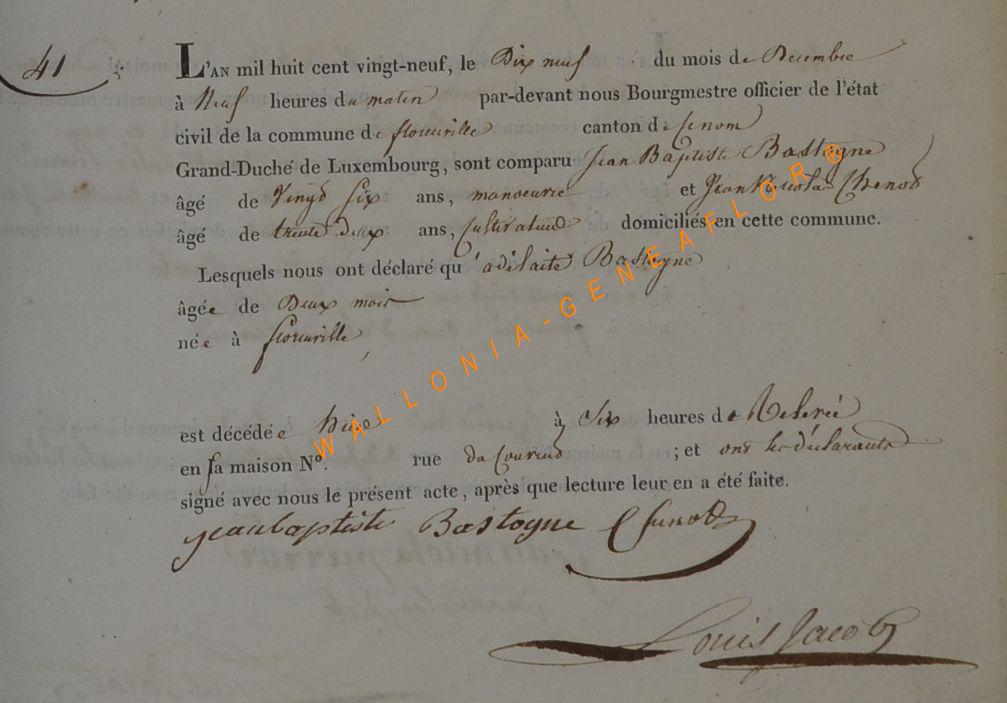 41
L'AN mil huit cent vingt-neuf, le Dix neuf du mois de Decembre
à Neuf heures du matin par-devant nous Bourgmestre officier de l'état
civil de la commune de florenville canton de
Grand-Duché de Luxembourg, sont comparu Jean Baptiste Bastogne
âgé de Vingt Six ans, manoeuvre et Jean Nicolas
âgé de trente Deux ans, cultivateur domiciliés en cette commune.
Lesquels nous ont déclaré qu'adelaite Bastogne
âgée de Deux mois
née à florenville
est décédée hier à Six heures de Relevée
en sa maison N°. rue ; et ont les déclarants
signé avec nous le présent acte, après que lecture leur en a été faite.
jean baptiste Bastogne
Louis Jacob
WALLONIA-GENEAFLOR®